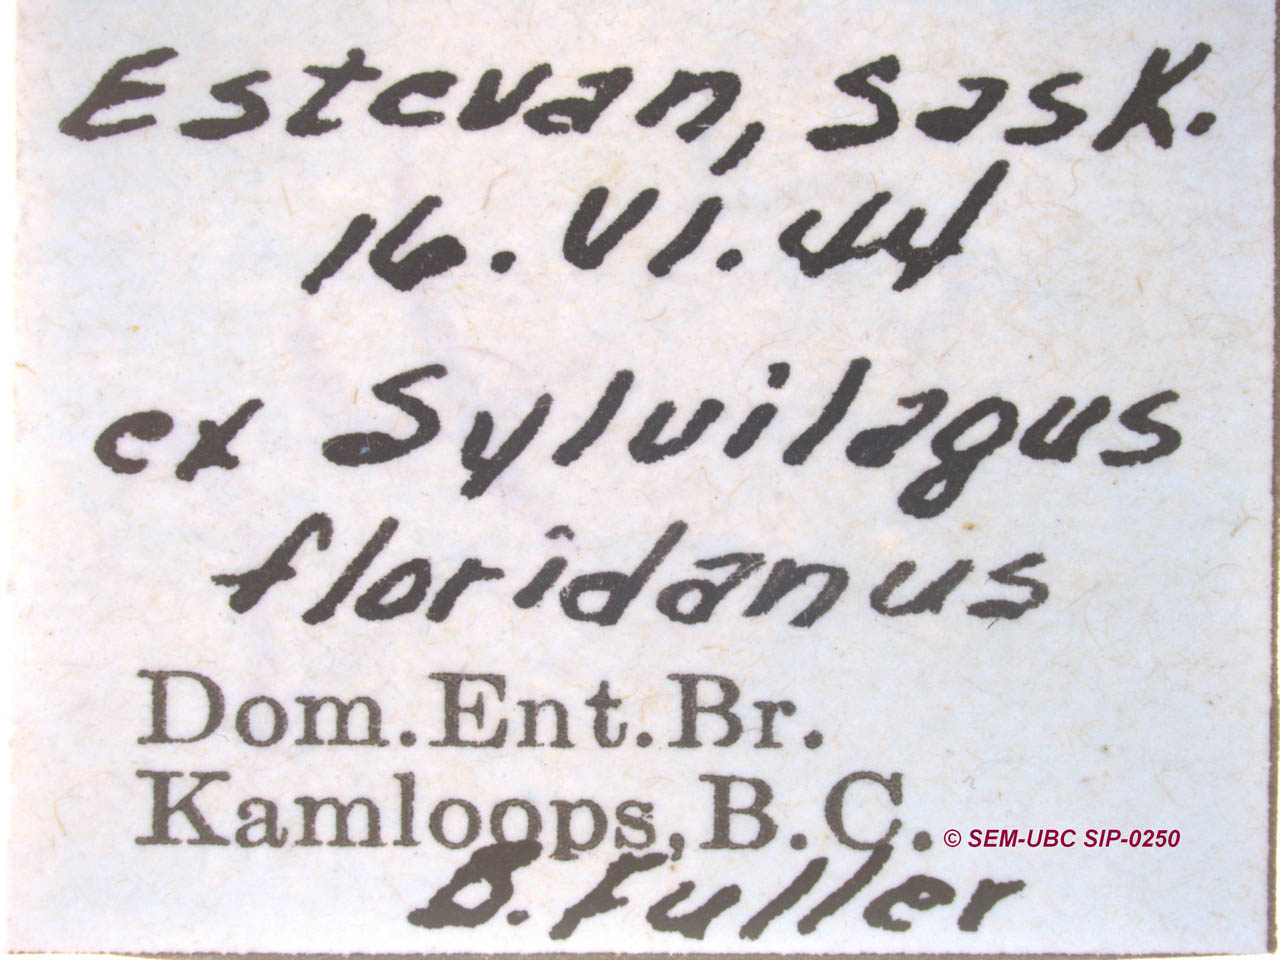 Estevan, Sask.
16.VI.44
ex Sylvilagus
floridanus
Dom.Ent.Br.
Kamloops,B.C.
© SEM-UBC SIP-0250
B. Fuller